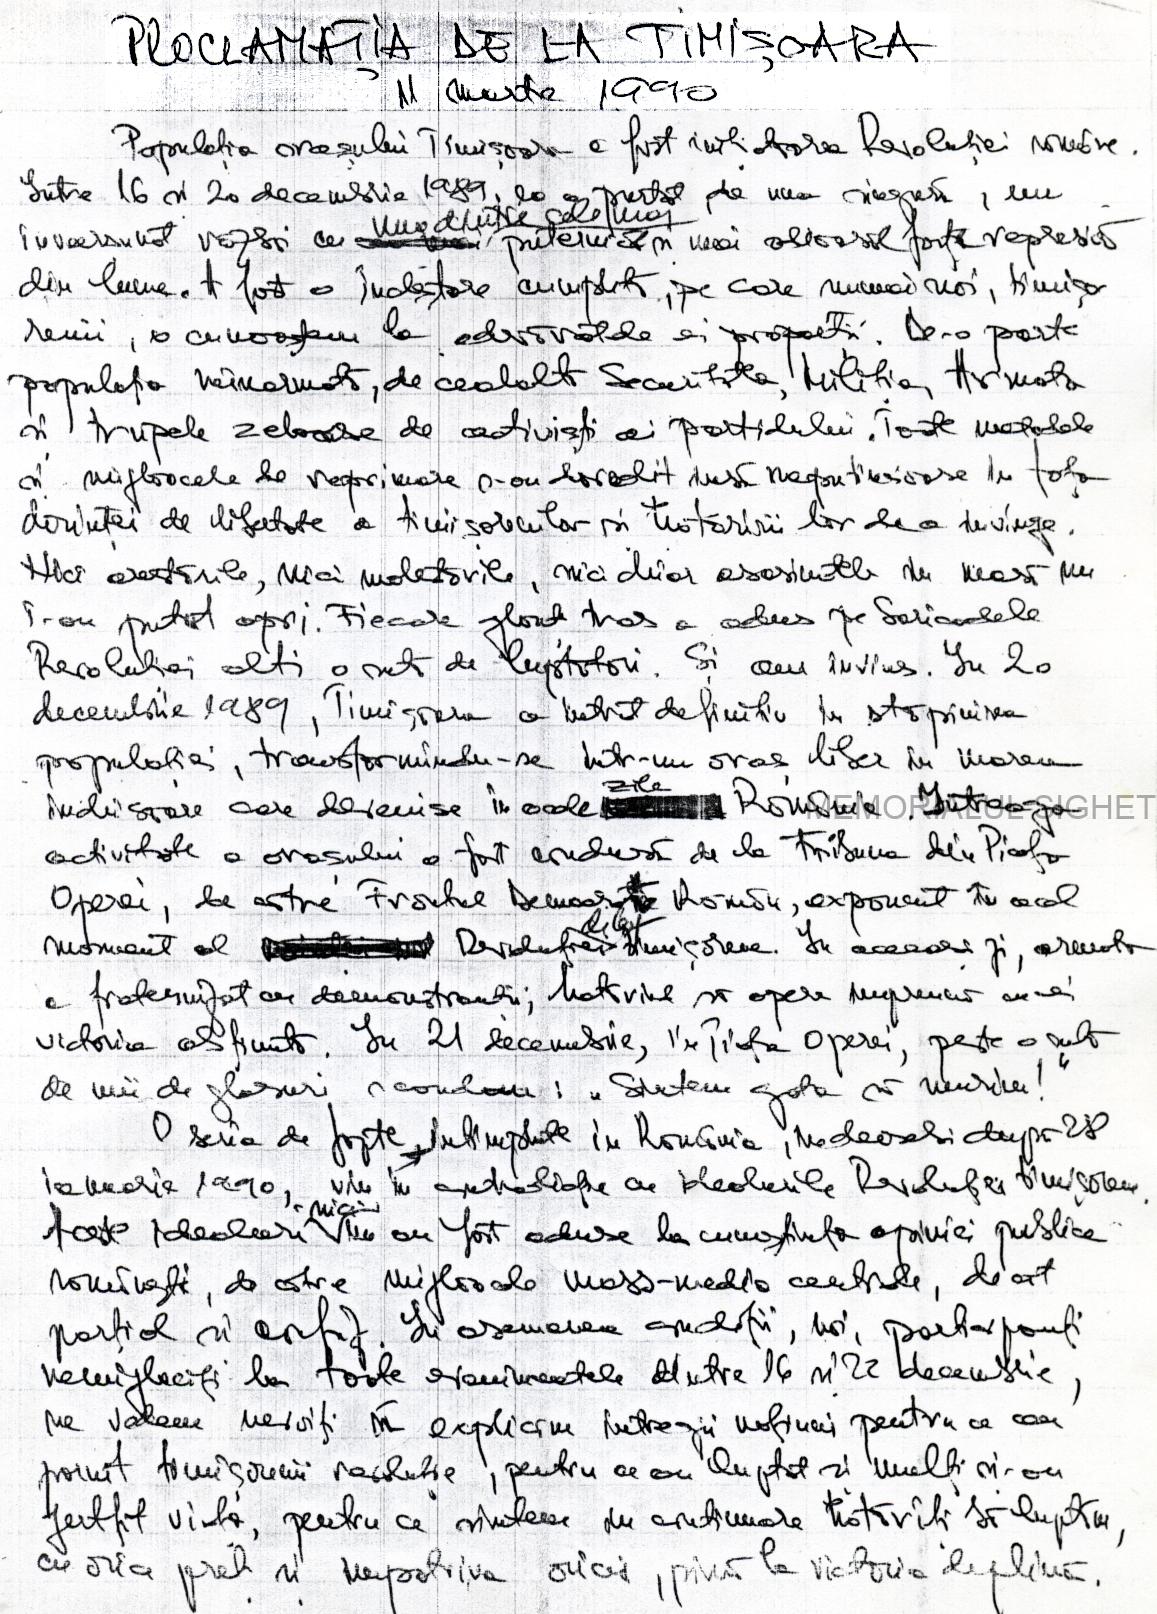 PROCLAMAȚIA DE LA TIMIȘOARA
11 martie 1990
Populația orașului Timișoara a fost inițiatoarea Revoluției române.
Între 16 și 20 decembrie 1989, ea a purtat de una singură, un
una dintre cele mai
înverșunat război cu puternice și mai odioase forțe represive
din lume. A fost o încleștare cumplită, pe care numai noi, timișo
renii, o cunoaștem la adevăratele ei proporții. De-o parte
populația neînarmată, de cealaltă Securitatea, Miliția, Armata
și trupele zeloase de activiști ai partidului. Toate metodele
și mijloacele de reprimare s-au dovedit însă neputincioase în fața
dorinței de libertate a timișorenilor și hotărîrii lor de a învinge.
Nici arestările, nici molestările, nici chiar asasinatele în masă nu
i-au putut opri. Fiecare glonț tras a adus pe baricadele
Revoluției alți o sută de luptători. Și am învins. În 20
decembrie 1989, Timișoara a intrat definitiv în stăpînirea
populației, transformîndu-se într-un oraș liber în marea
zile
închisoare care devenise în acele România. Întreaga
MEMORIALUL SIGHET
activitate a orașului a fost condusă de la tribuna din Piața
Operei, de către Frontul Democratic Român, exponent în acel
moment al Revoluției din Timișoara. În aceeași zi, armata
a fraternizat cu demonstranții, hotărînd să apere împreună cu ei
victoria obținută. În 21 decembrie, în Piața Operei, peste o sută
de mii de glasuri scandau: „Sîntem gata să murim!"
O serie de fapte întîmplate în România, îndeosebi după 28
ianuarie 1990, vin în contradicție cu idealurile Revoluției timișorene.
nici
Aceste idealuri nu au fost aduse la cunoștința opiniei publice
românești, de către mijloacele mass-media centrale, decît
parțial și confuz. În asemenea condiții, noi, participanți
nemijlociți la toate evenimentele dintre 16 și 22 decembrie,
ne vedem nevoiți să explicăm întregii națiuni pentru ce au
pornit timișorenii revoluție, pentru ce au luptat și mulți și-au
jertfit viața, pentru ce sîntem în continuare hotărîți să luptăm,
cu orice preț și împotriva oricui, pînă la victoria deplină.